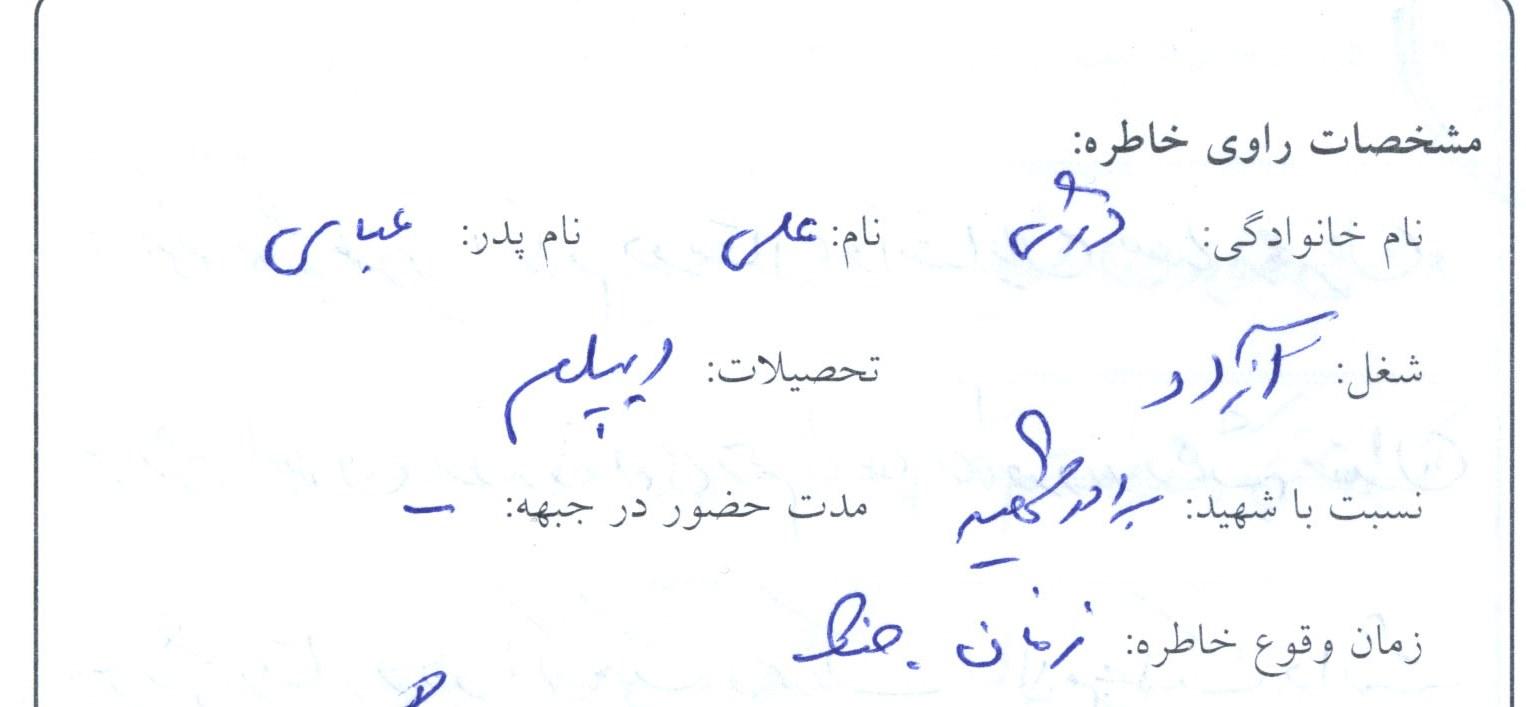 مشخصات راوی خاطره:
نام خانوادگی: نام: علی نام پدر: عباس
شغل: آزاد تحصیلات: دیپلم
نسبت با شهید: برادر شهید مدت حضور در جبهه: –
زمان وقوع خاطره: زمان جنگ